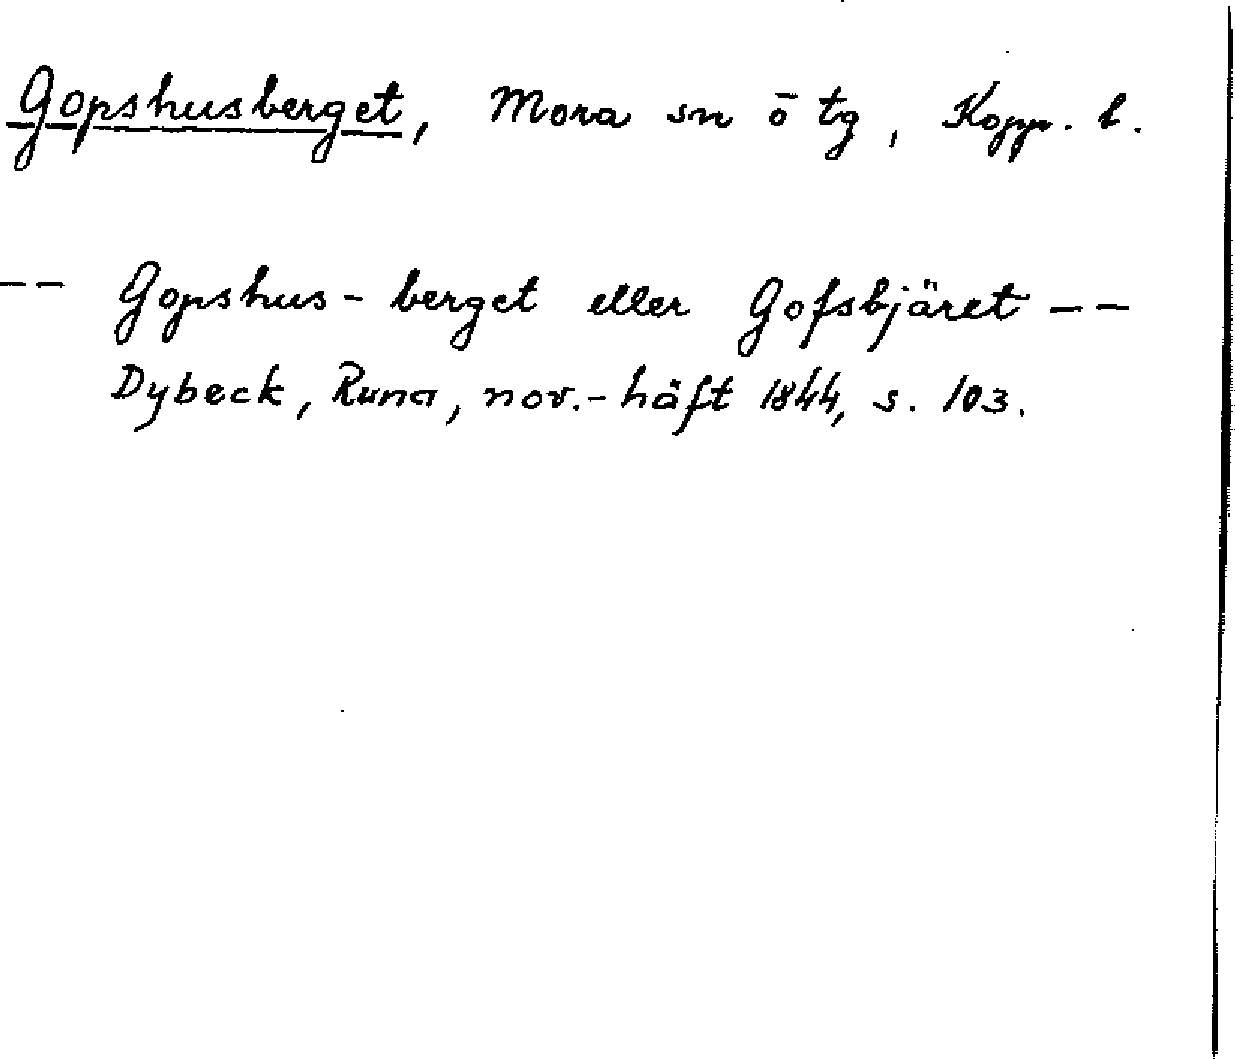 Gopshusberget, Mora sn ō tg, Kopp. l.
-- Gopshus-berget eller Gofsbjäret --
Dybeck, Runa, nov.-häft 1844, s. 103.